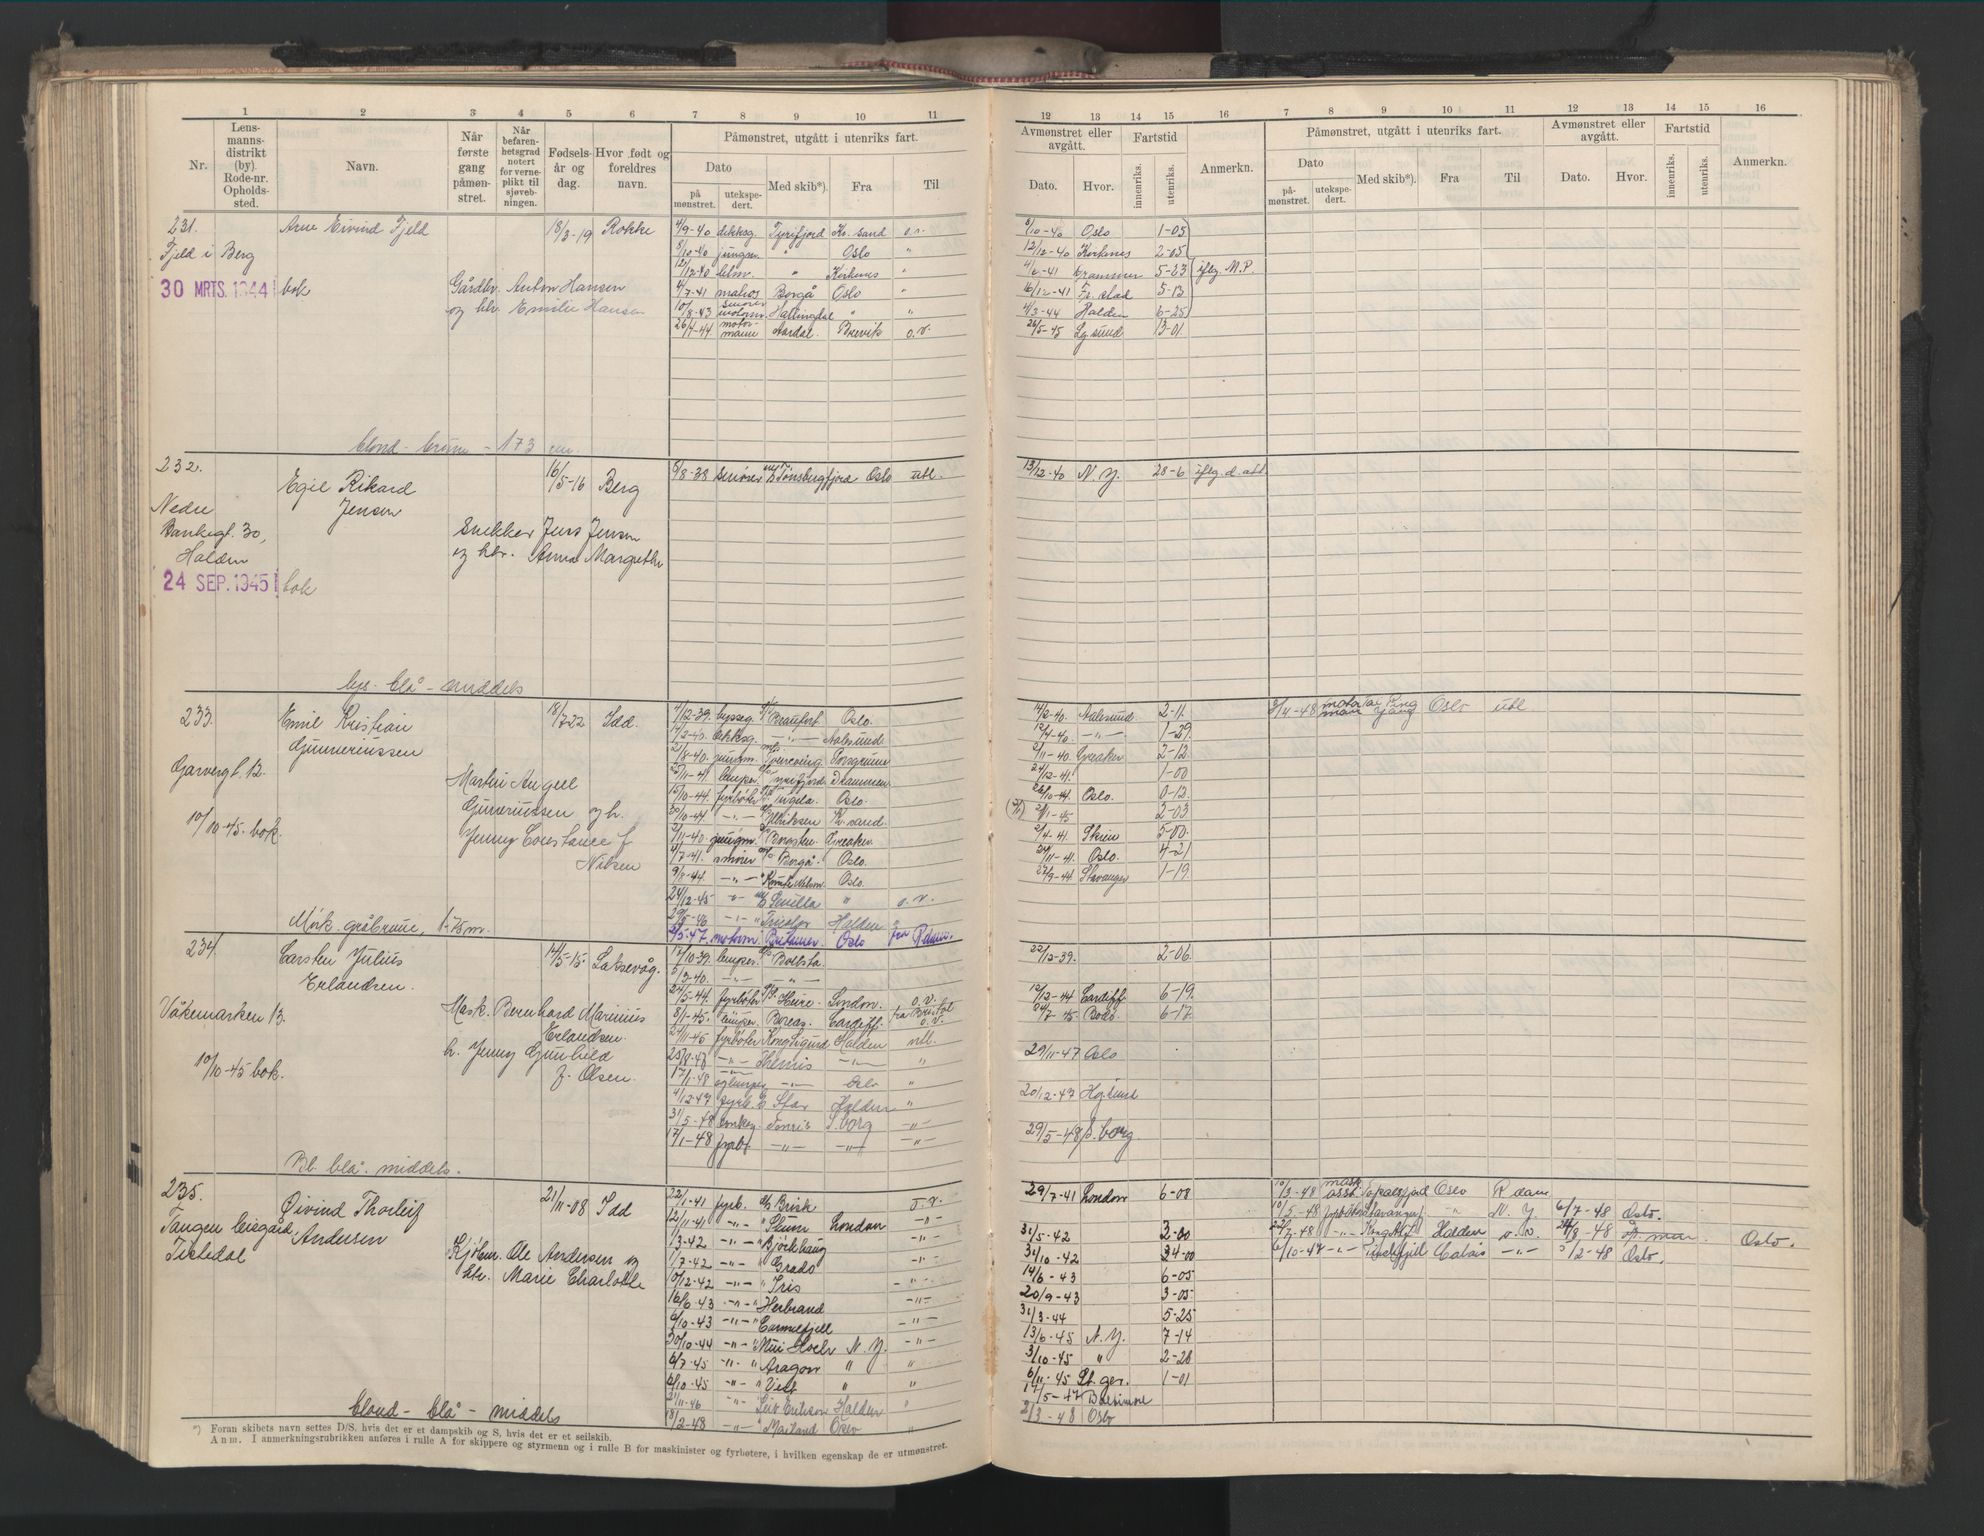 1 2 3 4 5 6 7 8 9 10 11
Nr.
Lens-
manns-
distrikt
(by).
Rode-nr.
Opholds-
sted.
Navn.
Når
første
gang
påmøn-
stret.
Når
befaren-
hetsgrad
notert
for verne-
plikt til
sjøveb-
ningen.
Fødsels
år og
dag.
Hvor født og
foreldres
navn.
Påmønstret, utgått i utenriks fart.
Dato
på
mønstret.
utekspe-
dert.
Med skib*).
Fra
Til
231.
Fjeld i Berg
30 MRTS. 1944 bok
Arne Eivind Fjeld
18/3-19 Rokke
Gårdbr. Anton Hansen
og htr. Emilie Hansen
4/9-40 dekksg. Tyrifjord Kr. sand o.v.
8/10-40 jungm. " Oslo "
12/12-40 " Kirkenes "
4/7-41 matros Borgå Oslo "
10/8-43 motorm. Hallingdal " "
26/4-44 motor-
mann Aardal. Brevik o.v.
blond - brune - 173 cm.
232.
Nedre
Bankegt. 30,
Halden
24 SEP. 1945 bok
Egil Rikard
Jensen
16/5-16 Berg
Snekker Jens Jensen
og htr. Anna Margrethe
8/8-38 smører Tønsbergfjord Oslo utl.
lys - blå - middels
233.
Garvergt. 12.
10/10-45 bok.
Emil Kristian
Gunneriussen
18/7-22 Idd.
Martin
Gunneriussen og h.
Jenny Constance f
Nilsen
4/12-39. byssg. Oslo.
14/2-40. dekksg. -"- Aalesund.
21/8-40. jungm. Porsgrunn
25/11-41. lemper Tyrifjord Drammen
15/10-44. fyrbøter Tugela. Oslo.
30/10-44. -"- Ulriksen Kr. sand.
2/11-40. jungm. Greaker.
4/7-41. smører Borgå. Oslo.
9/8-44. -"- Oslo.
24/12-45 -"- Sevilla " o.v.
29/5-46 -"- Tricolor Halden "
2/5-47. motorm. Oslo fra Rdam.
Mørk. gråbrune, 1.75 m.
234.
Våkemarken 13.
10/10-45 bok.
Carsten Julius
Erlandsen.
14/5-15. Laksevåg.
Mask. Bernhard Marinius
Erlandsen.
h. Jenny Gunhild
f. Olsen.
17/10-39. lemper Bolsta.
6/3-40. -"- "
24/5-44. fyrbøter Heire. London. o.v.
8/1-45. lemper. Boreas. Cardiff. fra Bristol
o.v.
24/11-45 fyrbøter Kong Sigurd Halden utl.
25/8-47 -"- Themis -"- "
17/1-48 -"- Oslo "
4/12-47 fyrb. Star Halden "
31/5-48 donkey. Fenris S.borg -"-
17/1-48 fyrb. -"- -"- -"-
Bl. blå. middels.
235.
Tangen leisgård,
Tistedal
Øivind Thorleif
Andersen
21/11-08 Idd
Kjørm. Ole Andersen og
htr. Marie Charlotte
22/1-41 fyrb. Brisk o.v.
12/11-41 -"- " Skum London -"-
1/3-42 -"- " Bjørkhaug -"-
1/7-42 -"- " Grado -"-
10/12-42 -"- " Iris -"-
16/6-43 -"- " Herbrand -"-
6/10-43 -"- " Carmelfjell -"-
30/10-44 -"- " N.Y. -"-
6/7-45 -"- " Aragon " "
6/10-45 -"- " Vest " "
21/11-46 -"- Leif Erikson Halden "
18/2-48 -"- " Mailand Oslo "
blond - blå - middels
*) Foran skibets navn settes D/S, hvis det er et dampskib og S, hvis det er et seilskib.
Anm. I anmerkningsrubrikken anføres i rulle A for skippere og styrmenn og i rulle B for maskinister og fyrbøtere, i hvilken egenskap de er utmønstret.
12 13 14 15 16 7 8 9 10 11 12 13 14 15 16
Avmønstret eller
avgått.
Dato. Hvor.
Fartstid
innenriks.
utenriks.
Anmerkn.
Påmønstret, utgått i utenriks fart.
Dato
på
mønstret.
utekspe-
dert.
Med skib*).
Fra
Til
Avmønstret eller
avgått.
Dato. Hvor.
Fartstid
innenriks.
utenriks.
Anmerkn.
8/10-40 Oslo 1-05
12/12-40 Kirkenes 2-05
4/6-41 Drammen 5-23 iflg. M.P.
16/12-41 Fr.stad 5-13
4/3-44 Halden 6-25
26/5-45 Lg.sund 13-01
13/12-40 N.Y. 28-6 iflg. d. att.
14/2-40. Aalesund. 2-11.
12/4-40. -"- 1-29.
2/11-40. Greaker 2-12.
24/12-41. 1-00
26/10-44. Oslo. 0-12.
2/1-45 2-03
2/4-41. Skien 5-00.
24/11-41. Oslo. 4-21
27/9-44 Stavanger 1-19.
3/4-48 motor
mann Tai Ping
Yang Oslo utl
22/12-39. 2-06.
12/12-44 Cardiff. 6-19.
24/7-45. Bodø. 6-17
29/11-47 Oslo
20/12-47
29/5-48 S.borg.
29/7-41 London 6-08
31/5-42 3-00
31/10-42 24-00
14/6-43 6-05
20/9-43 3-05
31/3-44 5-25
13/6-45 N.Y. 7-14
3/10-45 " 2-28
6/11-45 St. ger. 1-01
17/5-47 Baltimore
2/3-48 Oslo
10/3-48 mask
asst. Oslo R dam
10/5-48 fyrbøter Stavangerf. " N.Y. 6/7-48 Oslo.
22/7-48 -"- Halden o.v. 24/8-48 Oslo.
6/10-47 -"- Calais -"- 3/2-48 Oslo.